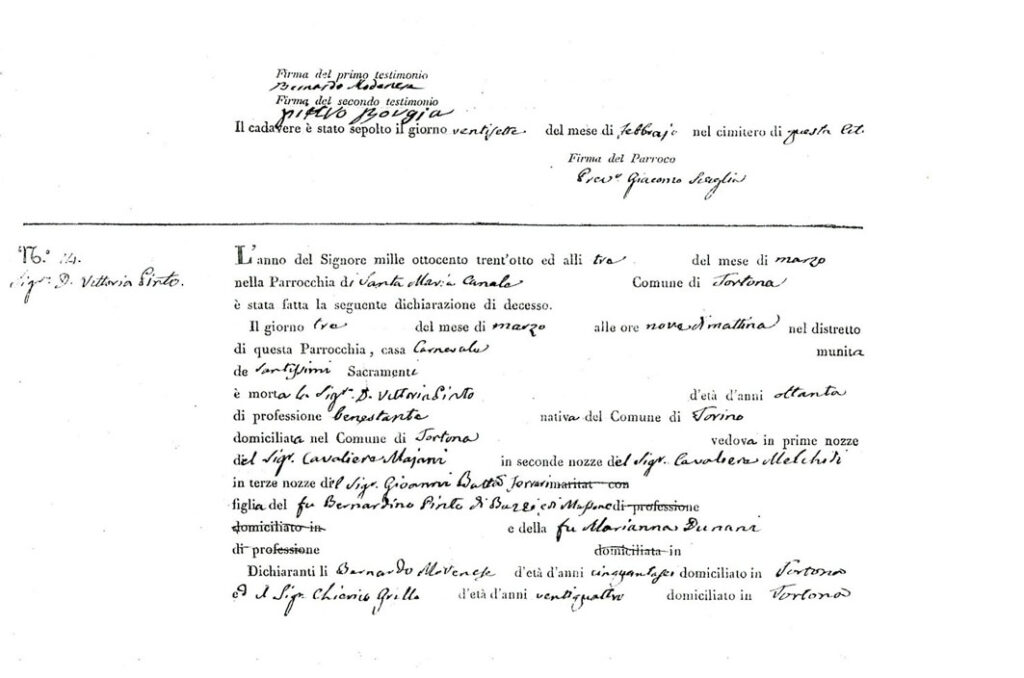 Firma del primo testimonio
Bernardo Modenese
Firma del secondo testimonio
pietro Borgia
Il cadavere è stato sepolto il giorno ventisette del mese di febbrajo nel cimitero di questa Cit.
Firma del Parroco
Prev.º Giacomo Scaglia
N.º 14.
Sig.ra D. Vittoria Pinto.
L'anno del Signore mille ottocento trent'otto ed alli tre del mese di marzo
nella Parrocchia di Santa Maria Canale Comune di Tortona
è stata fatta la seguente dichiarazione di decesso.
Il giorno tre del mese di marzo alle ore nove di mattina nel distretto
di questa Parrocchia, casa Carnevale munita
de Santissimi Sacramenti
è morta la Sig.ra D. Vittoria Pinto d'età d'anni ottanta
di professione benestante nativa del Comune di Torino
domiciliata nel Comune di Tortona vedova in prime nozze
del Sig.r Cavaliere Majani in seconde nozze del Sig.r Cavaliere
in terze nozze del Sig.r Gioanni Batt.a Ferrari maritat con
figlia del fu Bernardino Pinto di di professione
domiciliato in e della fu Marianna
di professione domiciliata in
Dichiaranti li Bernardo d'età d'anni cinquantasei domiciliato in Tortona
ed il Sig.r Grillo d'età d'anni ventiquattro domiciliato in Tortona